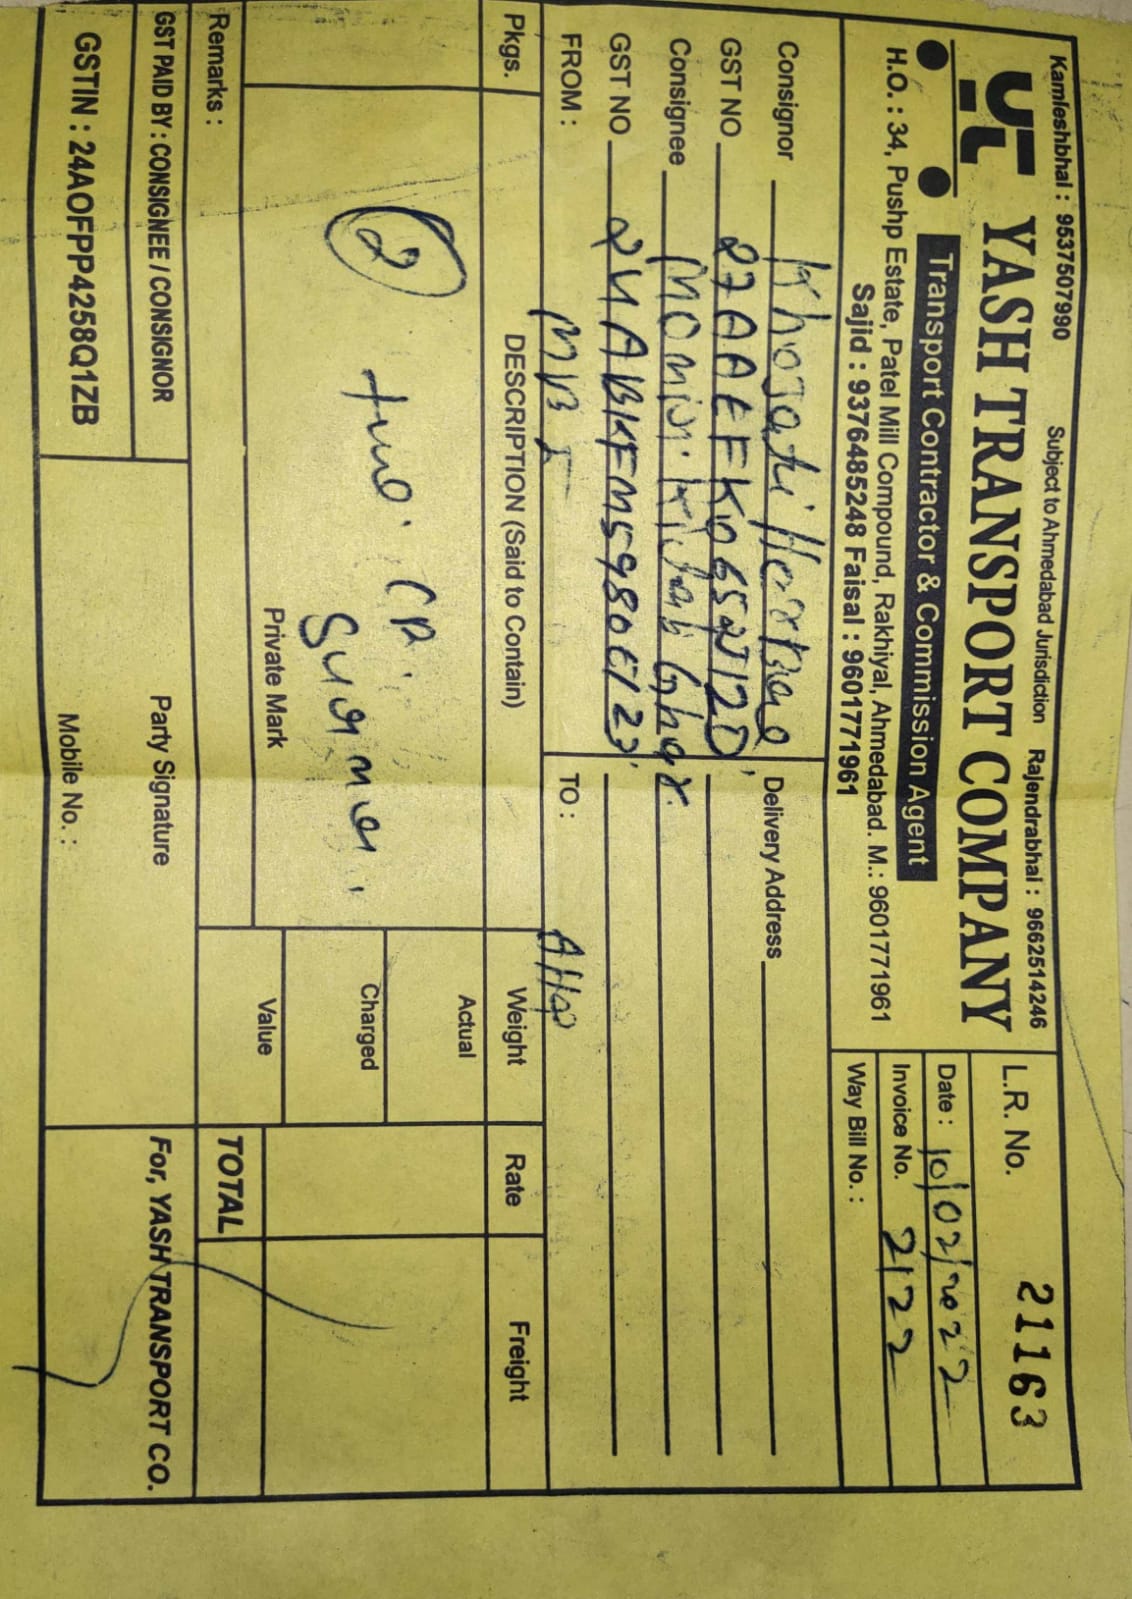 Kamleshbhai : 9537507990 Subject to Ahmedabad Jurisdiction Rajendrabhai : 9662514246
YASH TRANSPORT COMPANY
Transport Contractor & Commission Agent
H.O. : 34, Pushp Estate, Patel Mill Compound, Rakhiyal, Ahmedabad. M.: 9601771961
Sajid : 9376485248 Faisal : 9601771961
L.R. No. 21163
Date : 10/02/2022
Invoice No. 2122
Way Bill No. :
Consignor
Delivery Address
GST NO
Consignee
GST NO
FROM : TO :
Pkgs. DESCRIPTION (Said to Contain) Weight Rate Freight
2 Two
Actual
Charged
Private Mark
Value
TOTAL
Remarks :
GST PAID BY : CONSIGNEE / CONSIGNOR
GSTIN : 24AOFPP4258Q1ZB
Party Signature
Mobile No. :
For, YASH TRANSPORT CO.